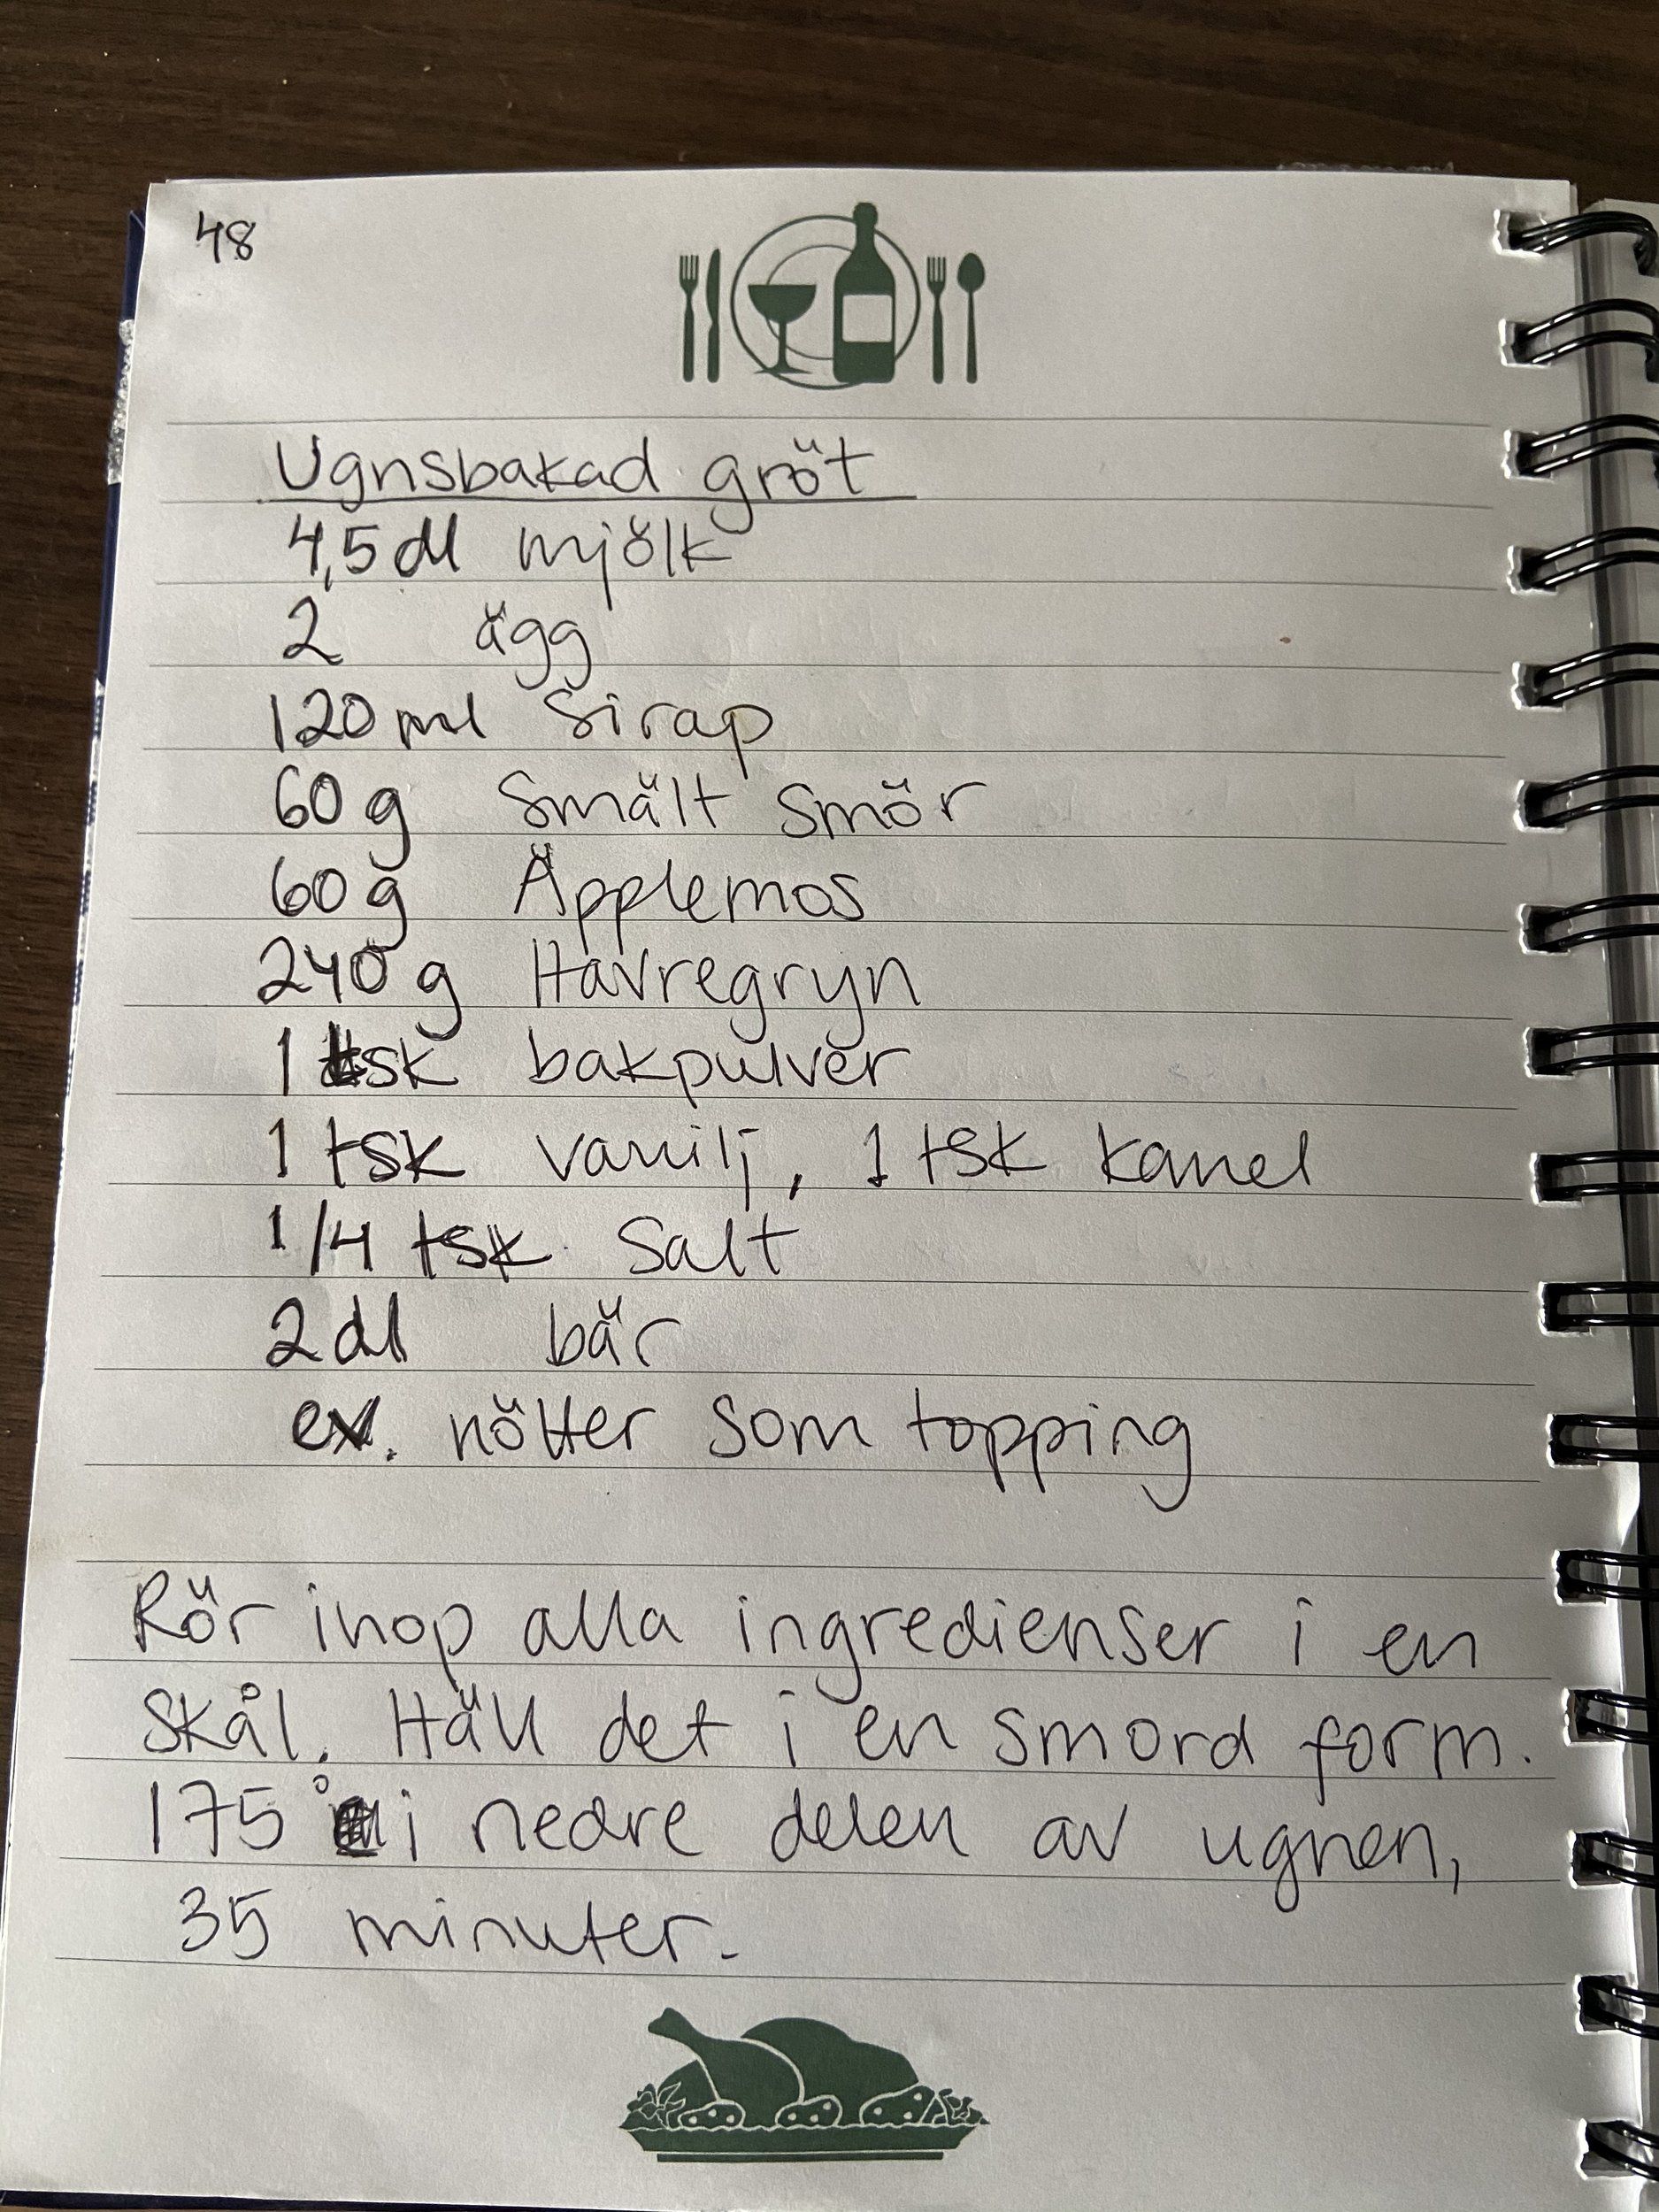 48
Ugnsbakad gröt
4,5 dl mjölk
2 ägg
120 ml Sirap
60 g Smält Smör
60 g Äpplemos
240 g Havregryn
1 tsk bakpulver
1 tsk vanilj, 1 tsk kanel
1/4 tsk Salt
2 dl bär
ev. nötter som topping
Rör ihop alla ingredienser i en
skål. Häll det i en smord form.
175° i nedre delen av ugnen,
35 minuter.